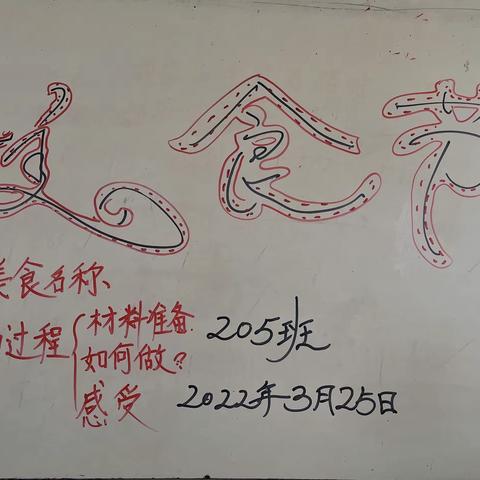 美食节
美食名称、
过程
材料准备
如何做？
感受
205班
2022年3月25日